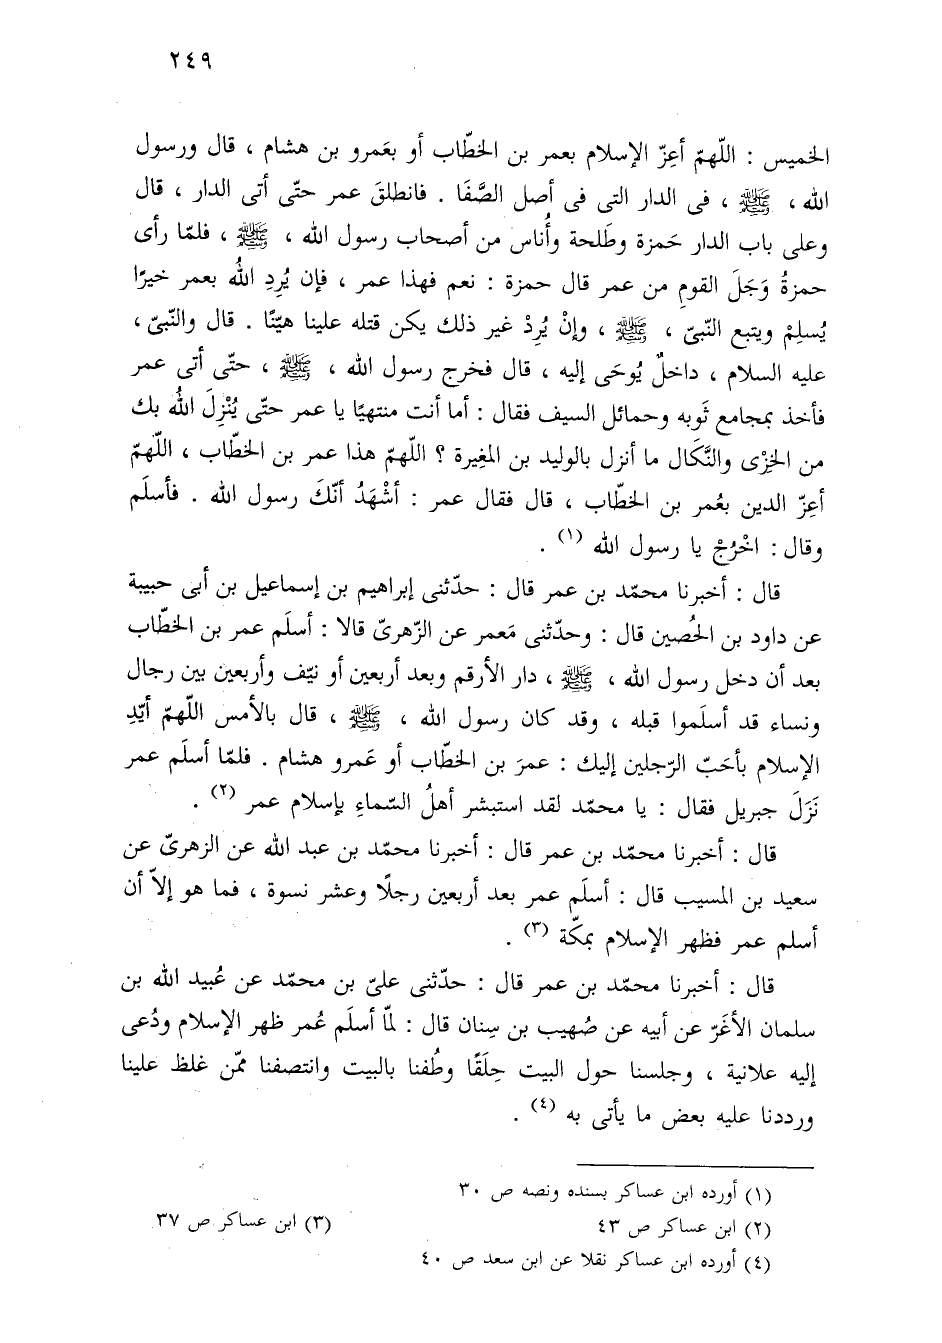 ٢٤٩
الخميس : اللّهمّ أعِزّ الإسلام بعمر بن الخطّاب أو بعَمرو بن هشام ، قال ورسول
الله ، ﷺ ، فى الدار التى فى أصل الصَّفَا . فانطلقَ عمر حتّى أتى الدار ، قال
وعلى باب الدار حَمزة وطَلحة وأُناس من أصحاب رسول الله ، ﷺ ، فلمّا رأى
حمزةُ وَجَلَ القومِ من عمر قال حمزة : نعم فهذا عمر ، فإن يُرِدِ اللهُ بعمر خيرًا
يُسلِمْ ويتبع النّبىّ ، ﷺ ، وإنْ يُرِدْ غير ذلك يكن قتله علينا هيّنًا . قال والنّبىّ ،
عليه السلام ، داخلٌ يُوحَى إليه ، قال فخرج رسول الله ، ﷺ ، حتّى أتى عمر
فأخذ بمجامع ثَوبه وحمائل السيف فقال : أما أنت منتهيًا يا عمر حتّى يُنْزِلَ اللهُ بك
من الخِزْى والنَّكَال ما أنزل بالوليد بن المغِيرة ؟ اللّهمّ هذا عمر بن الخطّاب ، اللّهمّ
أعِزّ الدين بعُمر بن الخطّاب ، قال فقال عمر : أشْهَدُ أنّكَ رسول الله . فأسلَم
وقال : اخْرُجْ يا رسول الله (١) .
قال : أخبرنا محمّد بن عمر قال : حدّثنى إبراهيم بن إسماعيل بن أبى حبيبة
عن داود بن الحُصين قال : وحدّثنى مَعمر عن الزّهرىّ قالا : أسلَم عمر بن الخطّاب
بعد أن دخل رسول الله ، ﷺ ، دار الأرقم وبعد أربعين أو نيّف وأربعين بين رجال
ونساء قد أسلَموا قبله ، وقد كان رسول الله ، ﷺ ، قال بالأمس اللّهمّ أيّدِ
الإسلام بأحَبّ الرّجلين إليك : عمرَ بن الخطّاب أو عَمرو هشام . فلمّا أسلَم عمر
نَزَلَ جبريل فقال : يا محمّد لقد استبشر أهلُ السّماءِ بإسلام عمر (٢) .
قال : أخبرنا محمّد بن عمر قال : أخبرنا محمّد بن عبد الله عن الزهرىّ عن
سعيد بن المسيب قال : أسلَم عمر بعد أربعين رجلًا وعشر نسوة ، فما هو إلاّ أن
أسلم عمر فظهر الإسلام بمكّة (٣) .
قال : أخبرنا محمّد بن عمر قال : حدّثنى علىّ بن محمّد عن عُبيد الله بن
سلمان الأغَرّ عن أبيه عن صُهيب بن سِنان قال : لمّا أسلَم عُمر ظهر الإسلام ودُعى
إليه علانية ، وجلسنا حول البيت حِلَقًا وطُفنا بالبيت وانتصفنا ممّن غلظ علينا
ورددنا عليه بعض ما يأتى به (٤) .
(١) أورده ابن عساكر بسنده ونصه ص ٣٠
(٢) ابن عساكر ص ٤٣ (٣) ابن عساكر ص ٣٧
(٤) أورده ابن عساكر نقلا عن ابن سعد ص ٤٠